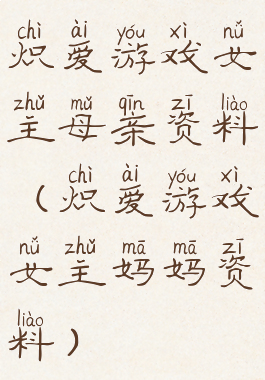 chì ài yóu xì nǚ
炽爱游戏女
zhǔ mǔ qīn zī liào
主母亲资料
chì ài yóu xì
(炽爱游戏
nǚ zhǔ mā mā zī
女主妈妈资
liào
料)